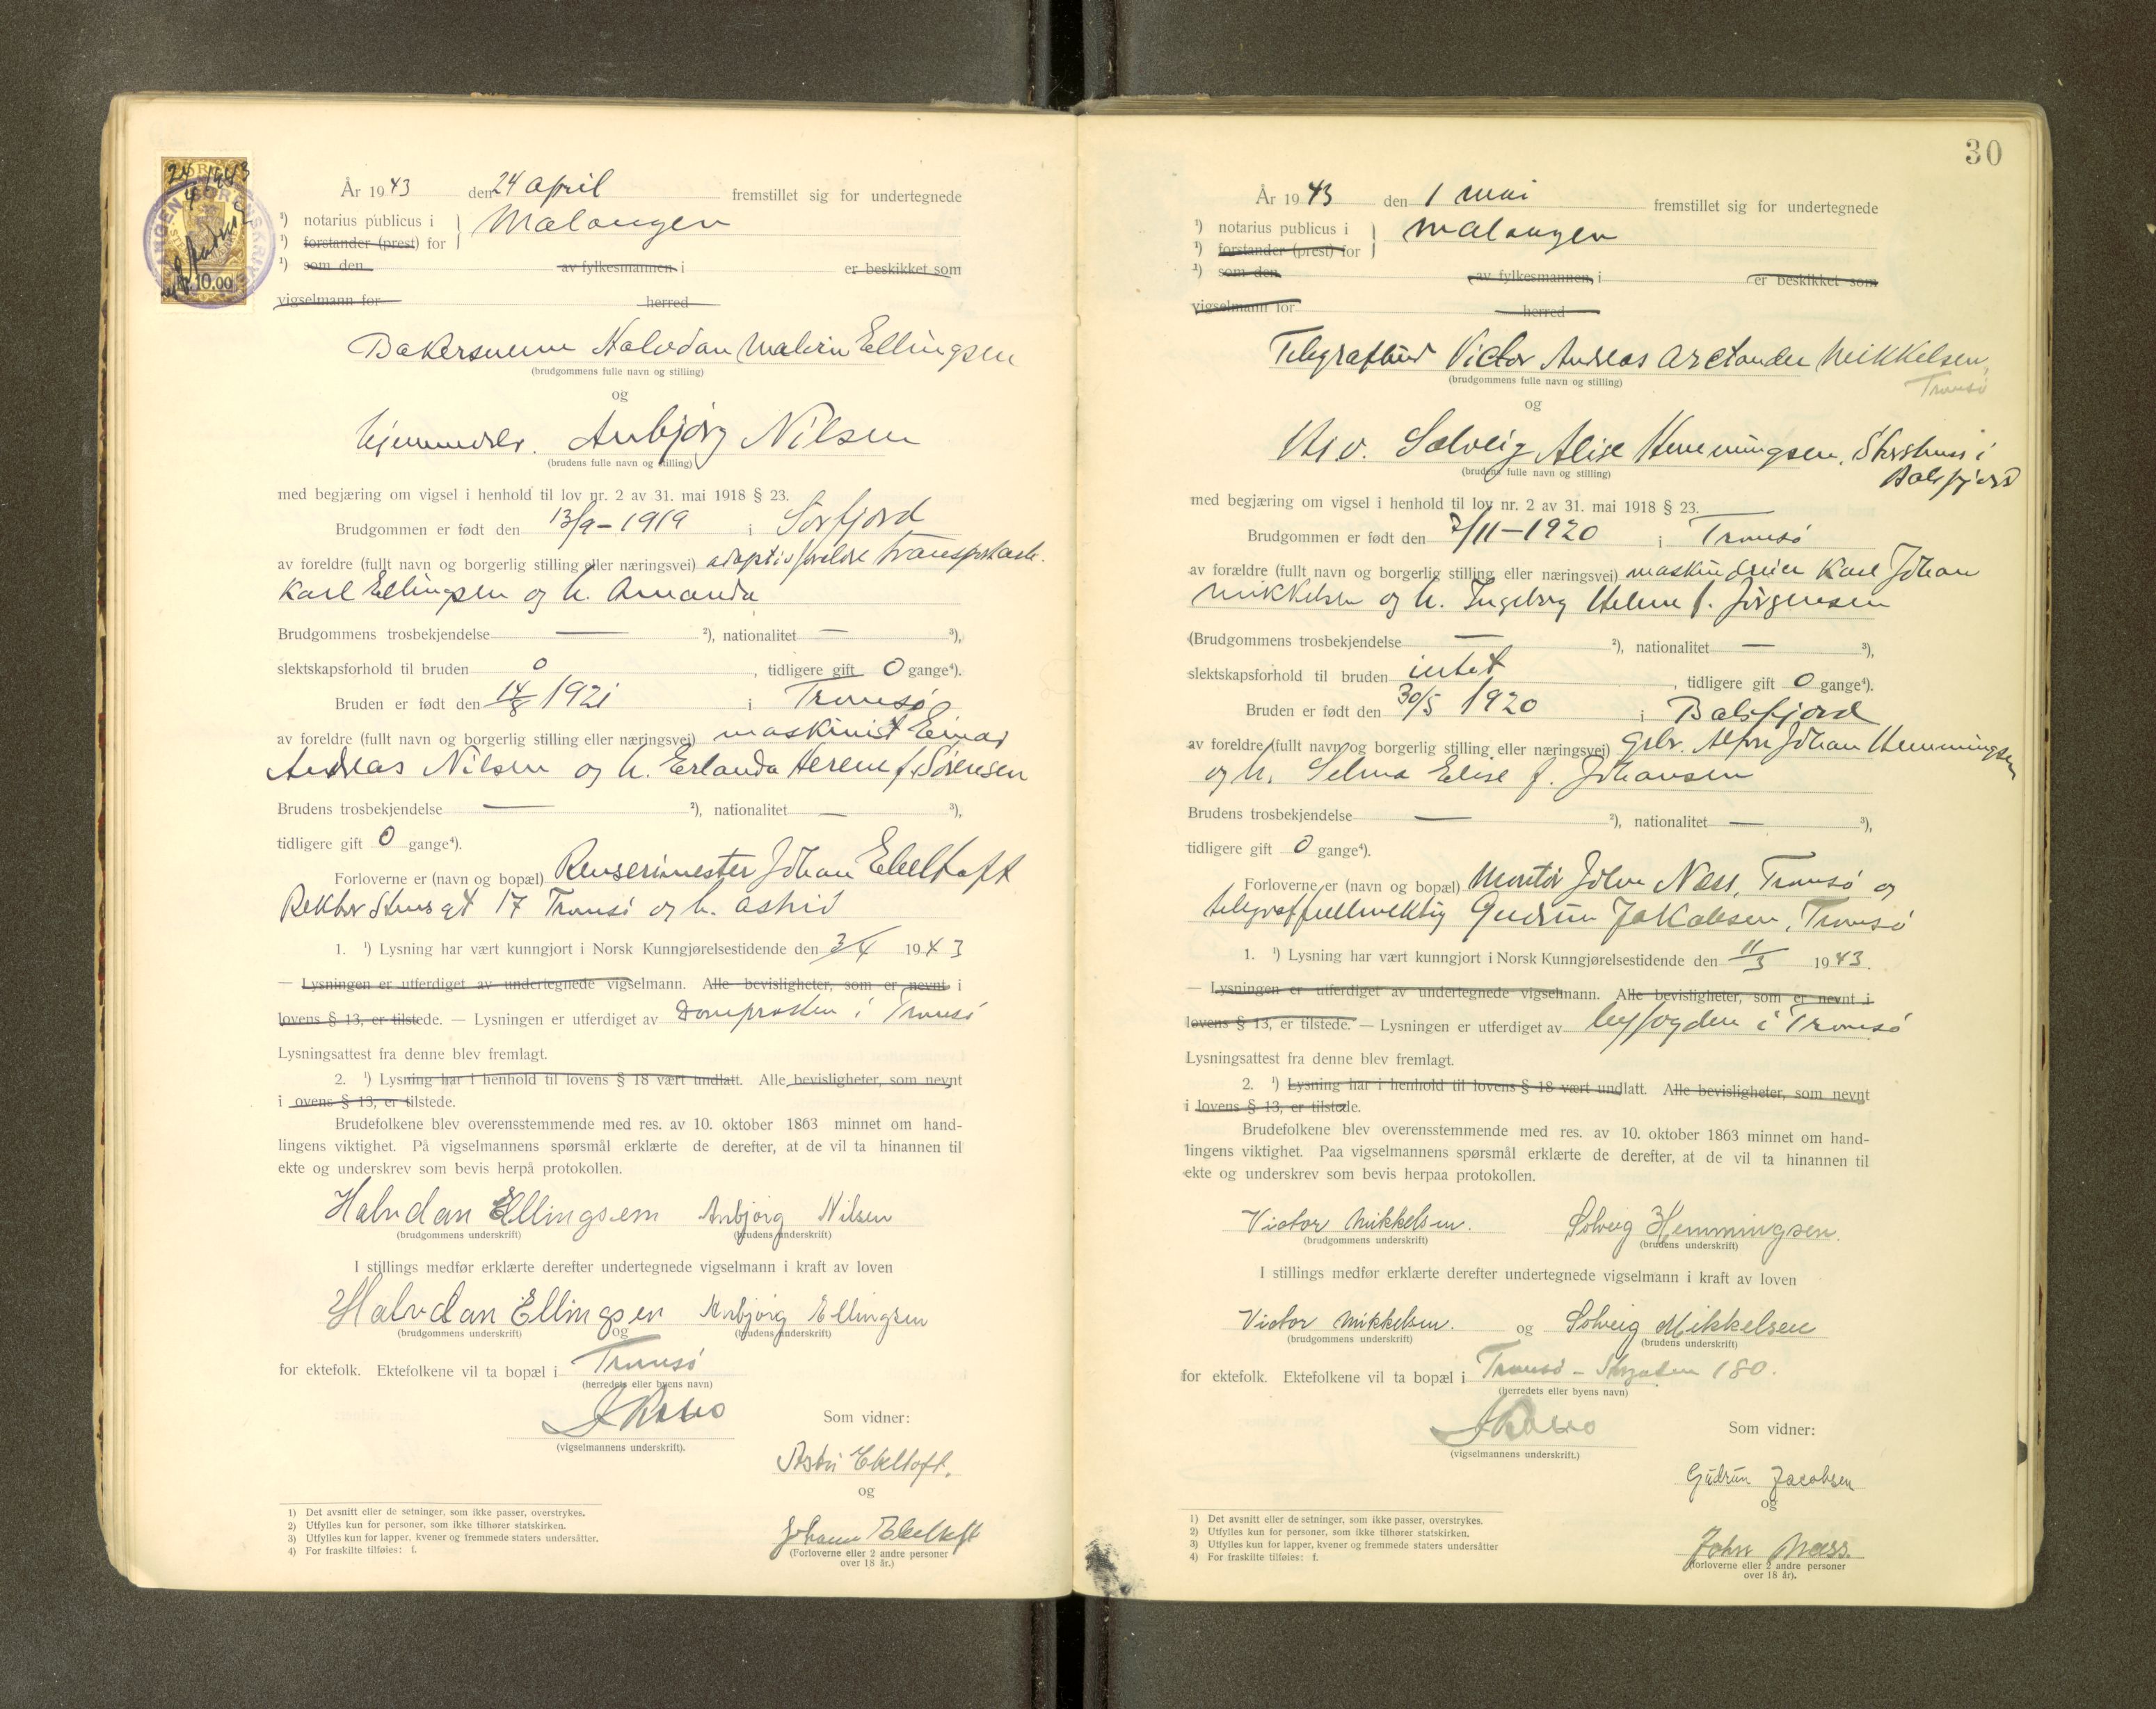 År 1943 den 24 april fremstillet sig for undertegnede
¹) notarius publicus i Malangen
¹) forstander (prest) for
¹) som den av fylkesmannen i er beskikket som
vigselmann for herred
Bakersvenn Halvdan Malvin Ellingsen
(brudgommens fulle navn og stilling)
og
hjemmevær. Anbjørg Nilsen
(brudens fulle navn og stilling)
med begjæring om vigsel i henhold til lov nr. 2 av 31. mai 1918 § 23.
Brudgommen er født den 13/9-1919 i Sørfjord
av foreldre (fullt navn og borgerlig stilling eller næringsvei) adoptivforeldre
Karl Ellingsen og h. Amanda
Brudgommens trosbekjendelse — ²), nationalitet — ³),
slektskapsforhold til bruden 0, tidligere gift 0 gange⁴).
Bruden er født den 14/8 1921 i Tromsø
av foreldre (fullt navn og borgerlig stilling eller næringsvei) maskinist Einar
Andreas Nilsen og h. Erlanda Herene f. Sørensen
Brudens trosbekjendelse — ²), nationalitet — ³),
tidligere gift 0 gange⁴).
Forloverne er (navn og bopæl) Renserimester Johan Ebeltoft
Rektor Steens gt 17 Tromsø og h. Astrid
1. ¹) Lysning har vært kunngjort i Norsk Kunngjørelsestidende den 3/4 1943
— Lysningen er utferdiget av undertegnede vigselmann. Alle bevisligheter, som er nevnt i
lovens § 13, er tilstede. — Lysningen er utferdiget av Domprosten i Tromsø
Lysningsattest fra denne blev fremlagt.
2. ¹) Lysning har i henhold til lovens § 18 vært undlatt. Alle bevisligheter, som nevnt
i ovens § 13, er tilstede.
Brudefolkene blev overensstemmende med res. av 10. oktober 1863 minnet om hand-
lingens viktighet. På vigselmannens spørsmål erklærte de derefter, at de vil ta hinannen til
ekte og underskrev som bevis herpå protokollen.
Halvdan Ellingsen Anbjørg Nilsen
(brudgommens underskrift) (brudens underskrift)
I stillings medfør erklærte derefter undertegnede vigselmann i kraft av loven
Halvdan Ellingsen og Anbjørg Ellingsen
(brudgommens underskrift) (brudens underskrift)
for ektefolk. Ektefolkene vil ta bopæl i Tromsø
(herredets eller byens navn)
(vigselmannens underskrift).
Som vidner:
Astri Ebeltoft.
og
Johann Ebeltoft
(Forloverne eller 2 andre personer
over 18 år.)
1) Det avsnitt eller de setninger, som ikke passer, overstrykes.
2) Utfylles kun for personer, som ikke tilhører statskirken.
3) Utfylles kun for lapper, kvener og fremmede staters undersåtter.
4) For fraskilte tilføies: f.
30
År 1943 den 1 mai fremstillet sig for undertegnede
¹) notarius publicus i Malangen
¹) forstander (prest) for
¹) som den av fylkesmannen, i er beskikket som
vigselmann for herred
Telegrafbud Victor Andreas Arctander Mikkelsen,
Tromsø
(brudgommens fulle navn og stilling)
og
Solveig Alise Hemmingsen, Storsteinnes i
Balsfjord
(brudens fulle navn og stilling)
med begjæring om vigsel i henhold til lov nr. 2 av 31. mai 1918 § 23.
Brudgommen er født den 7/11-1920 i Tromsø
av forældre (fullt navn og borgerlig stilling eller næringsvei) maskindreier Karl Johan
Mikkelsen og h. Ingeborg Helene f. Jørgensen
(Brudgommens trosbekjendelse — ²), nationalitet — ³),
slektskapsforhold til bruden intet, tidligere gift 0 gange⁴).
Bruden er født den 30/5 1920 i Balsfjord
av foreldre (fullt navn og borgerlig stilling eller næringsvei) Gbr. Alfon Johan Hemmingsen
og h. Selma Elise f. Johansen
Brudens trosbekjendelse — ²), nationalitet — ³),
tidligere gift 0 gange⁴).
Forloverne er (navn og bopæl) Montør John Næss, Tromsø og
telegraffullmektig Gudrun Jakobsen, Tromsø
1. ¹) Lysning har vært kunngjort i Norsk Kunngjørelsestidende den 11/3 1943.
— Lysningen er utferdiget av undertegnede vigselmann. Alle bevisligheter, som er nevnt i
lovens § 13, er tilstede. — Lysningen er utferdiget av byfogden i Tromsø
Lysningsattest fra denne blev fremlagt.
2. ¹) Lysning har i henhold til lovens § 18 vært undlatt. Alle bevisligheter, som nevnt
i lovens § 13, er tilstede.
Brudefolkene blev overensstemmende med res. av 10. oktober 1863 minnet om hand-
lingens viktighet. Paa vigselmannens spørsmål erklærte de derefter, at de vil ta hinannen til
ekte og underskrev som bevis herpaa protokollen.
Victor Mikkelsen. Solveig Hemmingsen.
(brudgommens underskrift) (brudens underskrift)
I stillings medfør erklærte derefter undertegnede vigselmann i kraft av loven
Victor Mikkelsen. og Solveig Mikkelsen
(brudgommens underskrift) (brudens underskrift)
for ektefolk. Ektefolkene vil ta bopæl i Tromsø - Storgaten 180.
(herredets eller byens navn)
(vigselmannens underskrift.)
Som vidner:
Gudrun Jacobsen
og
John Næss.
(forloverne eller 2 andre personer
over 18 år).
1) Det avsnitt eller de setninger, som ikke passer, overstrykes.
2) Utfylles kun for personer, som ikke tilhører statskirken.
3) Utfylles kun for lapper, kvener og fremmede staters undersåtter
4) For fraskilte tilføies: f.